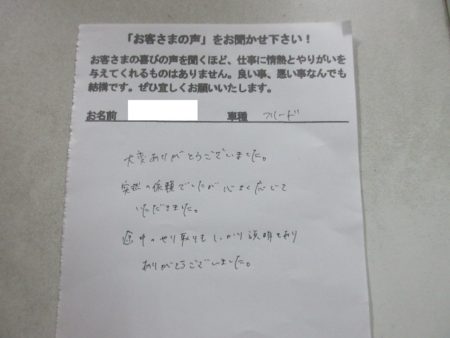 「お客さまの声」をお聞かせ下さい！
お客さまの喜びの声を聞くほど、仕事に情熱とやりがいを
与えてくれるものはありません。良い事、悪い事なんでも
結構です。ぜひ宜しくお願いいたします。
お名前 車種 フリード
大変ありがとうございました。
突然の依頼でしたが心よく応じて
いただきました。
途中のやり取りもしっかり説明もあり
ありがとうございました。